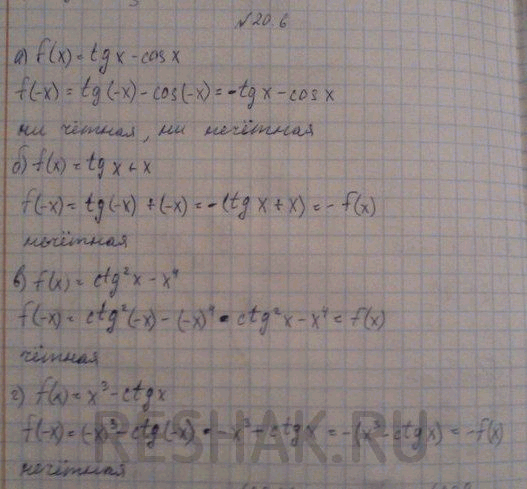 №20.6
а) f(x) = tg x - cos x
f(-x) = tg(-x) - cos(-x) = -tg x - cos x
ни чётная, ни нечётная
б) f(x) = tg x + x
f(-x) = tg(-x) + (-x) = -(tg x + x) = - f(x)
нечётная
в) f(x) = ctg²x - x⁴
f(-x) = ctg²(-x) - (-x)⁴ = ctg²x - x⁴ = f(x)
чётная
г) f(x) = x³ - ctg x
f(-x) = (-x)³ - ctg(-x) = -x³ + ctg x = -(x³ - ctg x) = -f(x)
нечётная
RESHAK.RU